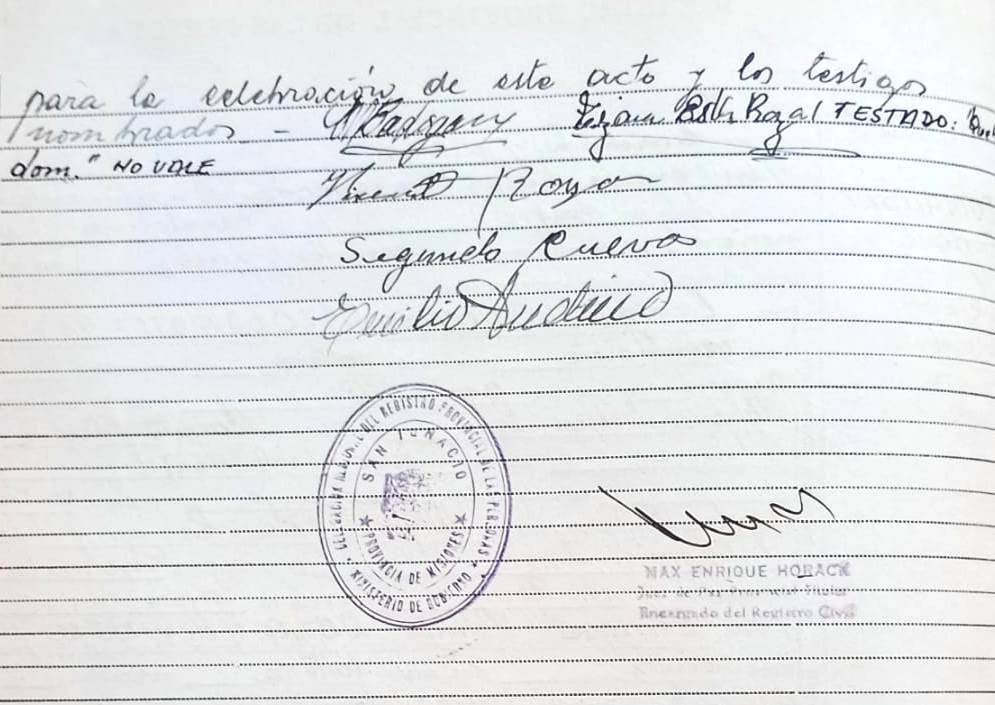 para la celebración de este acto y los testigos
nombrados - Rozal TESTADO:
dom." NO VALE
Segundo Cuevas
Emilio Audino
DELEGACION REGIONAL DEL REGISTRO PROVINCIAL DE LAS PERSONAS
SAN IGNACIO
PROVINCIA DE MISIONES
MINISTERIO DE GOBIERNO
MAX ENRIQUE HORACK
Juez de Paz Provincial Titular
Encargado del Registro Civil